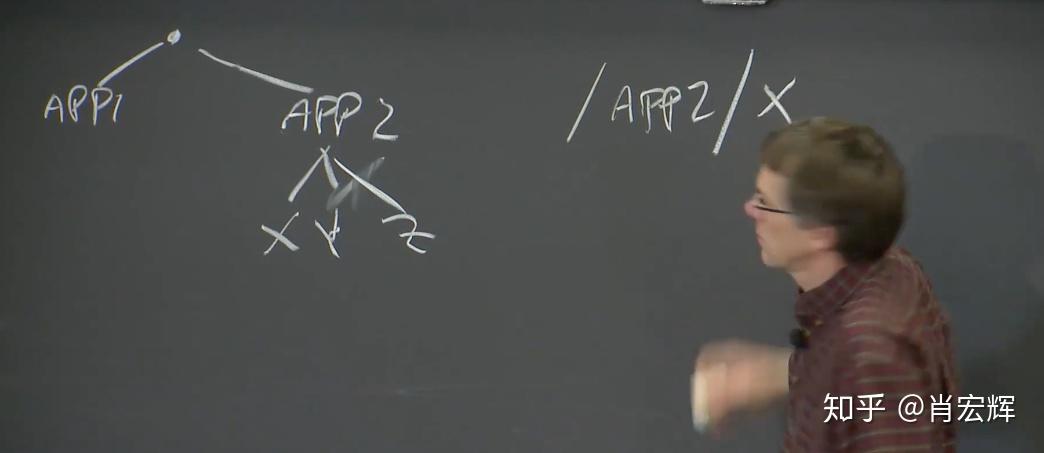 APP1
APP2
X Y Z
/APP2/X
知乎 @肖宏辉